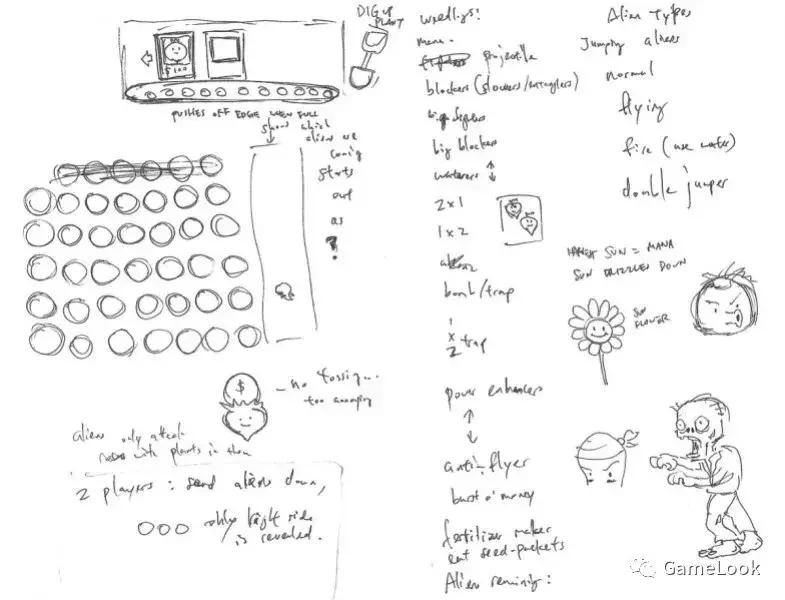 DIG UP
PLANT
$100
PUSHES OFF EDGE WHEN FULL
show which
aliens are
coming
starts
out
as
?
$
no tossing...
too annoying
aliens only attack
rows with plants in them
2 players: send aliens down,
only right side
is revealed.
projectile
blockers (slockers/entanglers)
big blockers
waterers
2x1
1x2
bomb/trap
1
x
2 trap
power enhancers
anti-flyer
burst o' money
fertilizer maker
eat seed-packets
Alien
Alien Types
Jumping aliens
normal
flying
fire (use water)
double jumper
HARVEST SUN = MANA
SUN DRIZZLES DOWN
SUN
FLOWER
GameLook